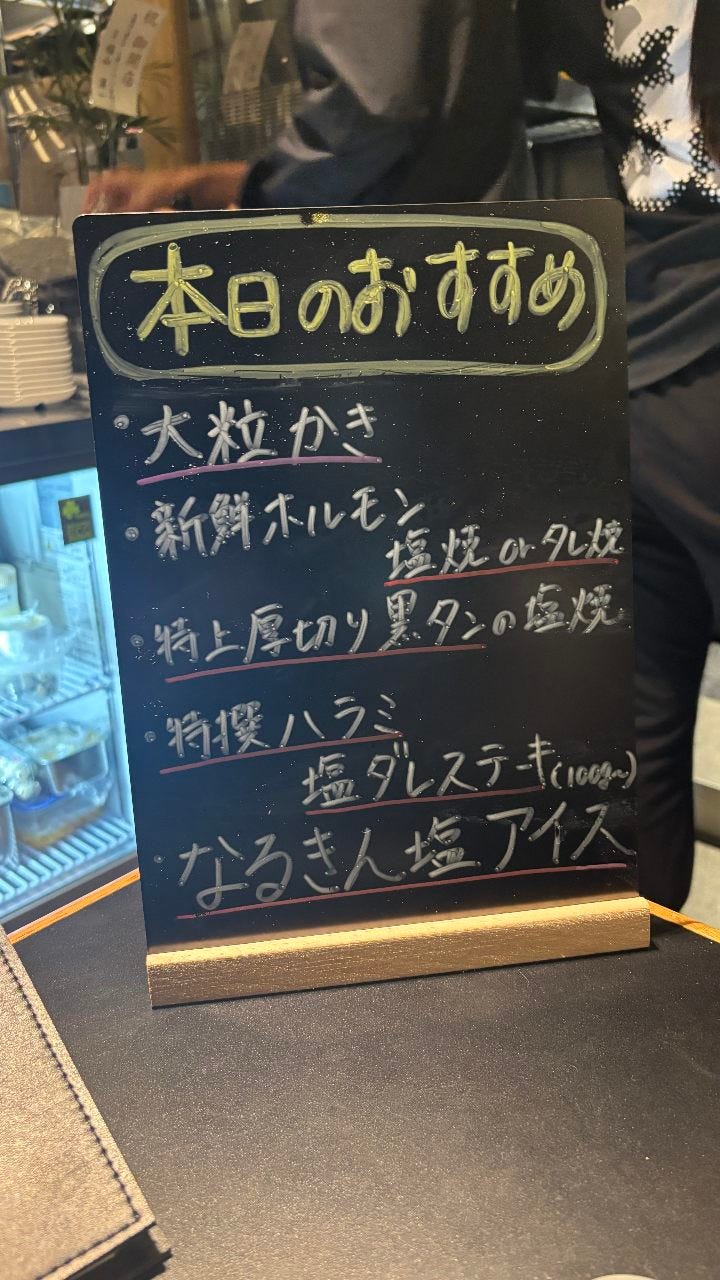 本日のおすすめ
・大粒かき
・新鮮ホルモン
塩焼 or タレ焼
・特上厚切り黒タンの塩焼
・特撰ハラミ
塩ダレステーキ(100g~)
・なるきん塩アイス